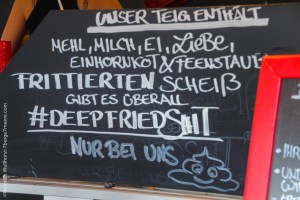 UNSER TEIG ENTHÄLT
MEHL, MILCH, EI, Liebe,
EINHORNKOT & FEENSTAUB
FRITTIERTEN SCHEIß
GIBT ES ÜBERALL
#DEEPFRIEDSHIT
NUR BEI UNS
IHR